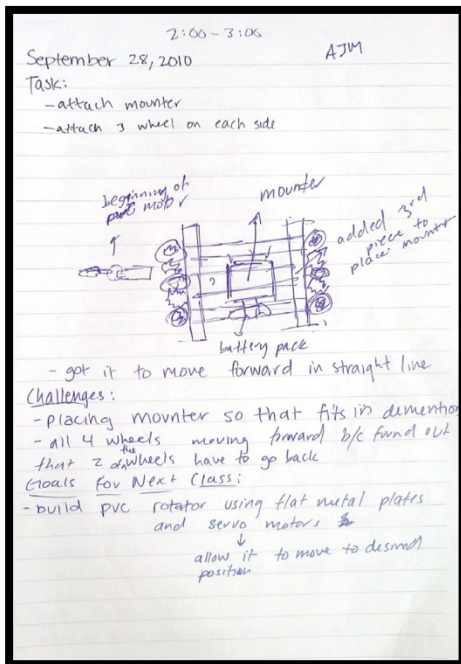 2:00 - 3:00
AJM
September 28, 2010
Task:
- attach mounter
- attach 3 wheel on each side
beginning of
motor
mounter
added 3rd
piece to
place mounter
?
battery pack
- got it to move forward in straight line
Challenges:
- placing mounter so that fits in demention
- all 4 wheels moving forward b/c found out
that 2 of the wheels have to go back
Goals for Next Class:
- build pvc rotator using flat metal plates
and servo motors
allow it to move to desired
position